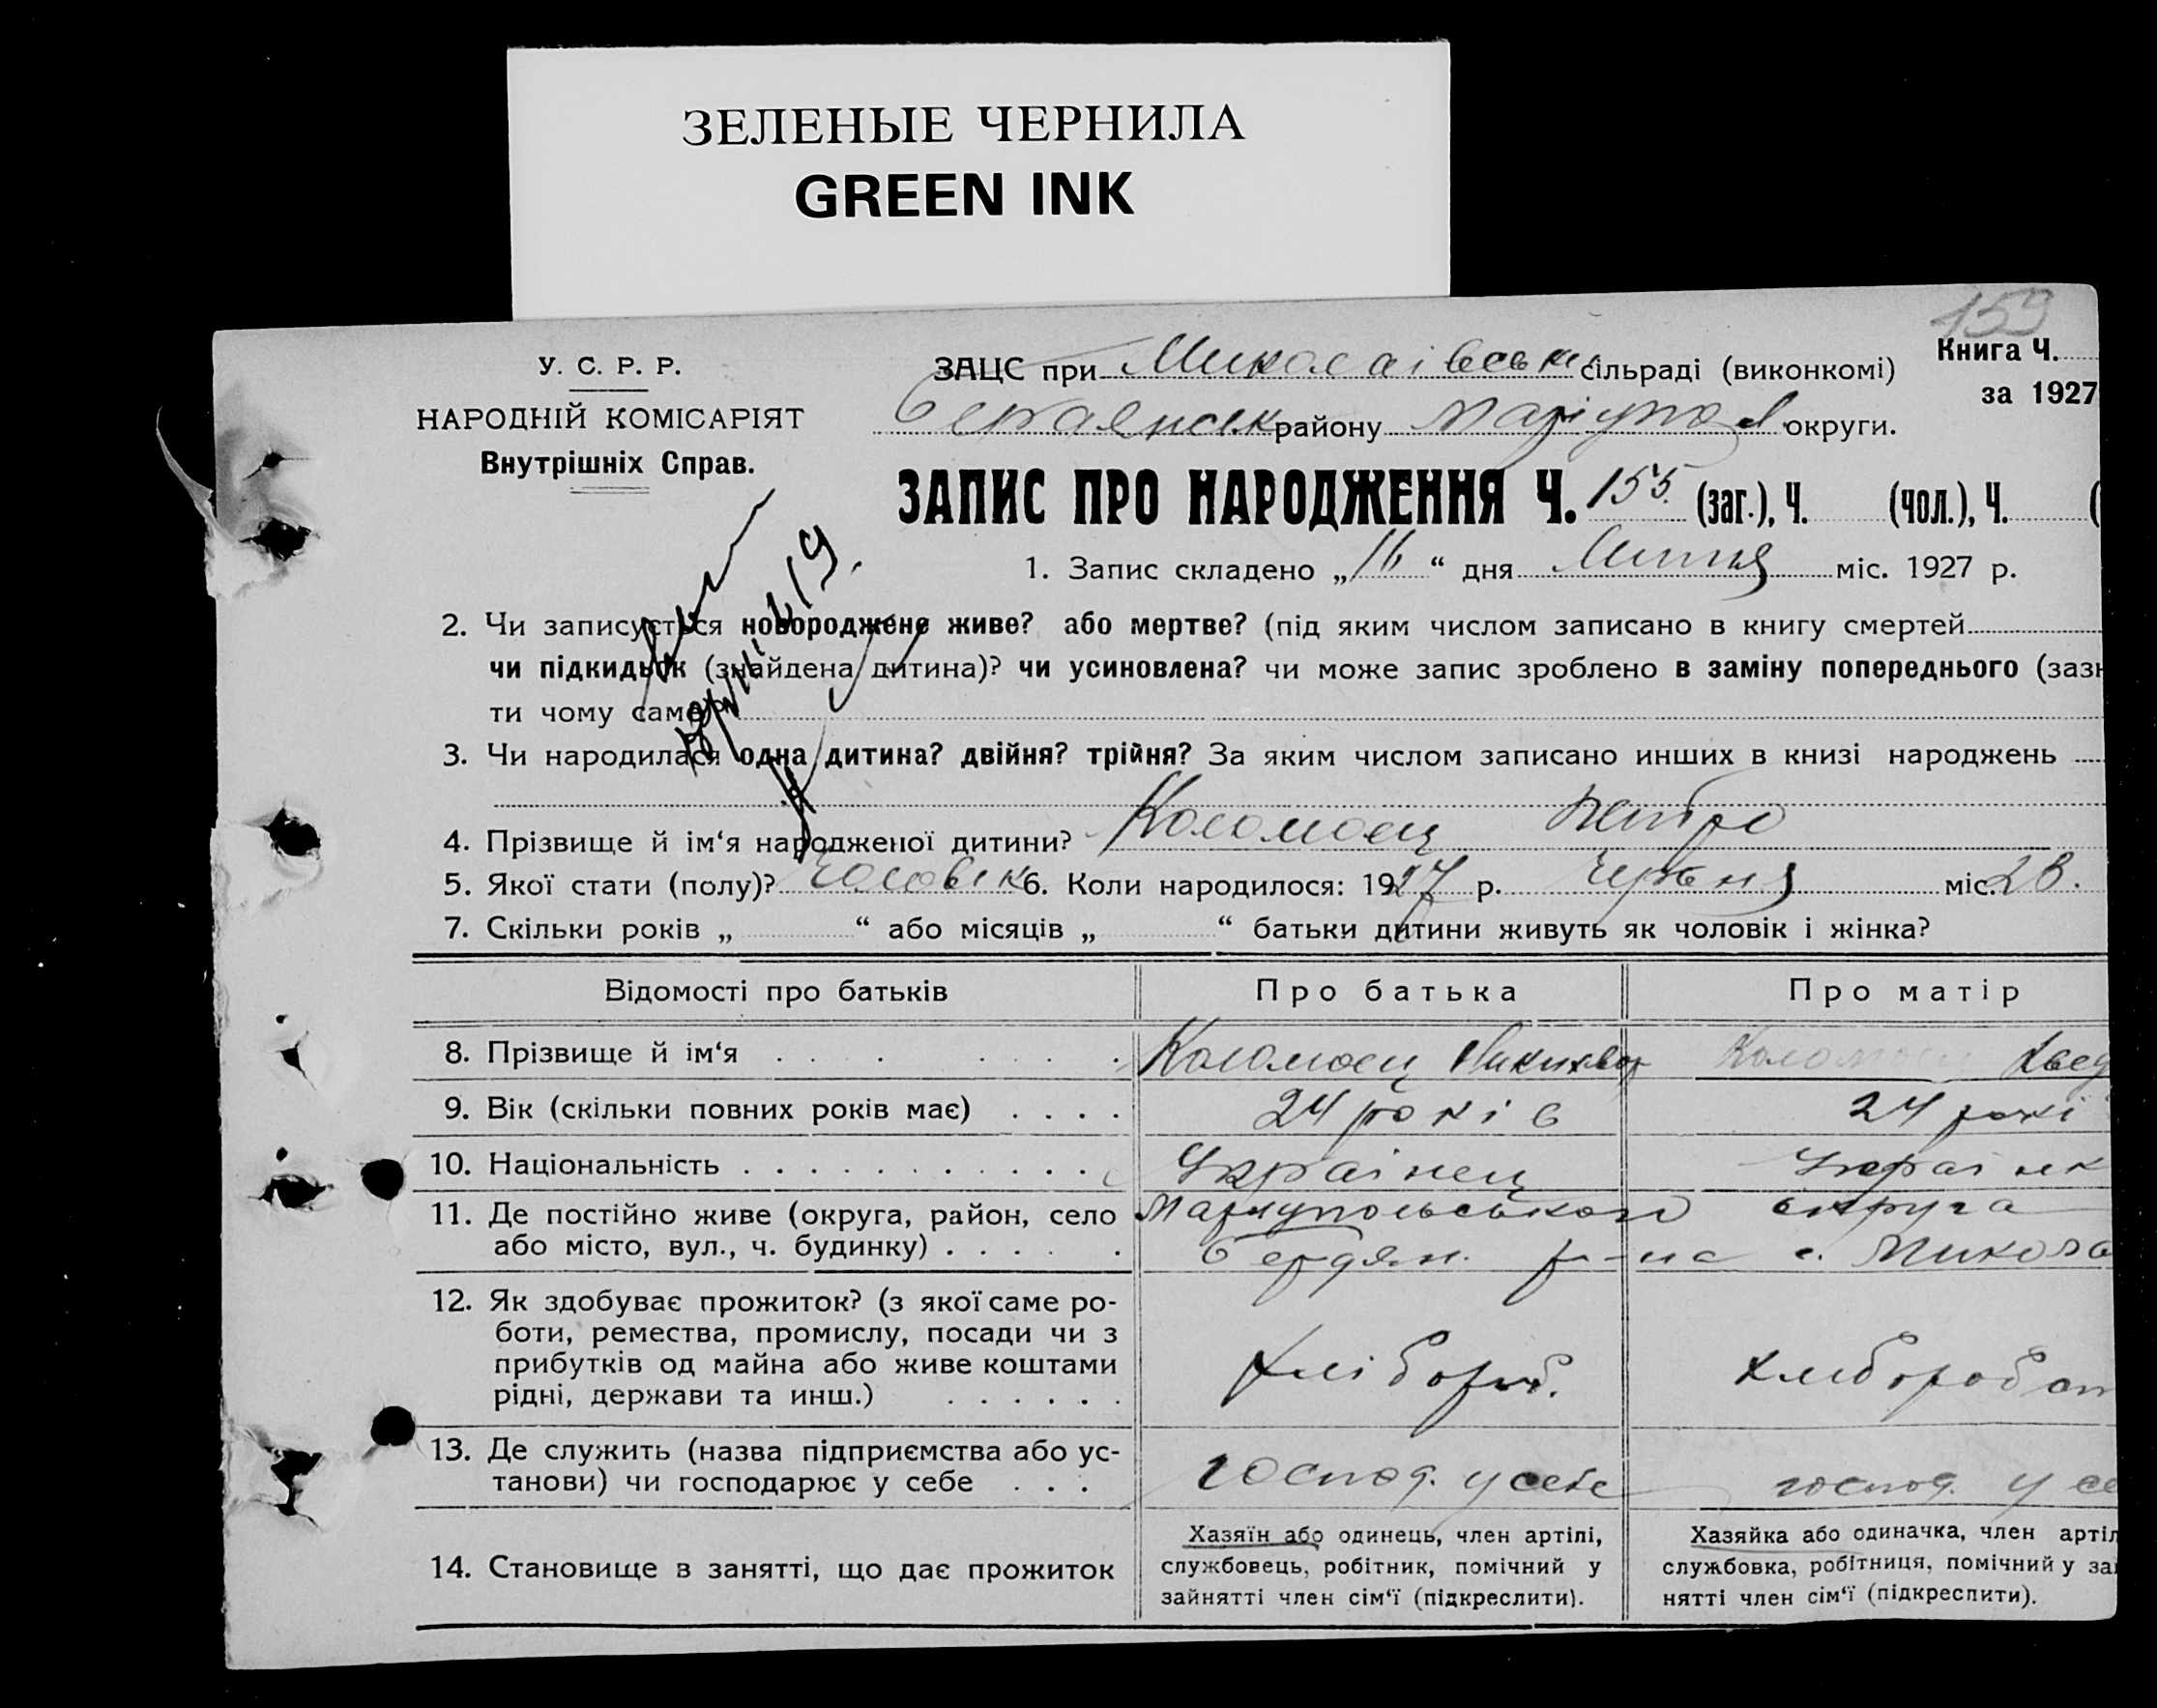 ЗЕЛЕНЫЕ ЧЕРНИЛА
GREEN INK
159
У. С. Р. Р.
НАРОДНІЙ КОМІСАРІЯТ
Внутрішніх Справ.
ЗАЦС при Миколаівськ сільраді (виконкомі)
Книга Ч.
за 1927
Бердянськ району Маріупол. округи.
ЗАПИС ПРО НАРОДЖЕННЯ Ч. 155. (заг.), Ч. (чол.), Ч. (
1. Запис складено „16“ дня Липня міс. 1927 р.
2. Чи записується новороджене живе? або мертве? (під яким числом записано в книгу смертей
чи підкидьок (знайдена дитина)? чи усиновлена? чи може запис зроблено в заміну попереднього (зазн
ти чому саме
3. Чи народилася одна дитина? двійня? трійня? За яким числом записано инших в книзі народжень
4. Прізвище й ім‘я народженої дитини? Коломоец Петро
5. Якої стати (полу)? Чоловік 6. Коли народилося: 1927 р. Червня міс. 28.
7. Скільки років „ “ або місяців „ “ батьки дитини живуть як чоловік і жінка?
Відомості про батьків Про батька Про матір
8. Прізвище й ім‘я Коломоец Никифор Коломоец
9. Вік (скільки повних років має) 24 років 24 рокі
10. Національність Украінец Украінк
11. Де постійно живе (округа, район, село Маріупольського округа
або місто, вул., ч. будинку) Бердян. р-на с. Микола
12. Як здобуває прожиток? (з якої саме ро-
боти, ремества, промислу, посади чи з
прибутків од майна або живе коштами
рідні, держави та инш.)
хлібороб. хлиборобст
13. Де служить (назва підприємства або ус-
танови) чи господарює у себе
господ. у себе господ. у се
14. Становище в занятті, що дає прожиток
Хазяїн або одинець, член артілі,
службовець, робітник, помічний у
зайнятті член сім‘ї (підкреслити).
Хазяйка або одиначка, член артіл
службовка, робітниця, помічний у за
нятті член сім‘ї (підкреслити).